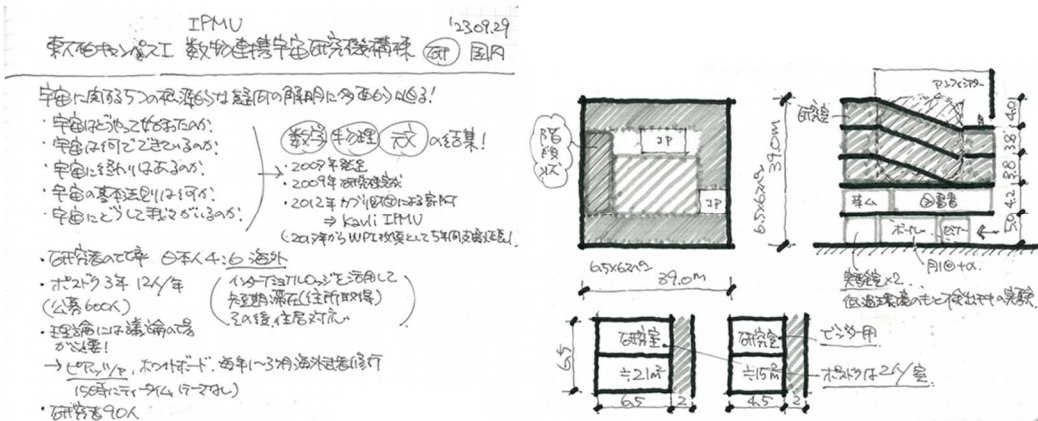 IPMU
'23.09.29
東大柏キャンパスI 数物連携宇宙研究機構様 研 国内
宇宙に関する5つの根源的な疑問の解明に多面から迫る!
・宇宙はどうやって始まったのか?
・宇宙は何でできているのか?
・宇宙に終わりはあるのか?
・宇宙の基本法則は何か?
・宇宙にどうして我々がいるのか?
数学 物理 天文 の結集!
・2007年発足
・2009年研究棟完成
・2012年カブリ財団による寄附
⇒ Kavli IPMU
(2017年からWPI政策として5年間支援延長!
・研究者の比率 日本人4:6海外
・ポスドク3年 12人/年
(公募600人)
インターナショナルロッジを活用して
短期滞在(住所取得)
その後、住居対応
・理論には議論の場
が必要!
→ピアッツァ、ホワイトボード、毎年1~3ヶ月海外武者修行
15時にティータイム(テーマなし)
・研究者90人
階段状
コア
コア
6.5×6スパン
39.0m
6.5×6スパン
39.0m
研究室
アンフィシアター
4.0
3.8
3.8
4.2
5.0
事ム
図書
ホール
ENT
月1回+α.
実験室×2
低温環境のもと
研究室
≒21m²
6.5
6.5
2
研究室
≒15m²
4.5
2
ビジター用
ポスドクは2人/室